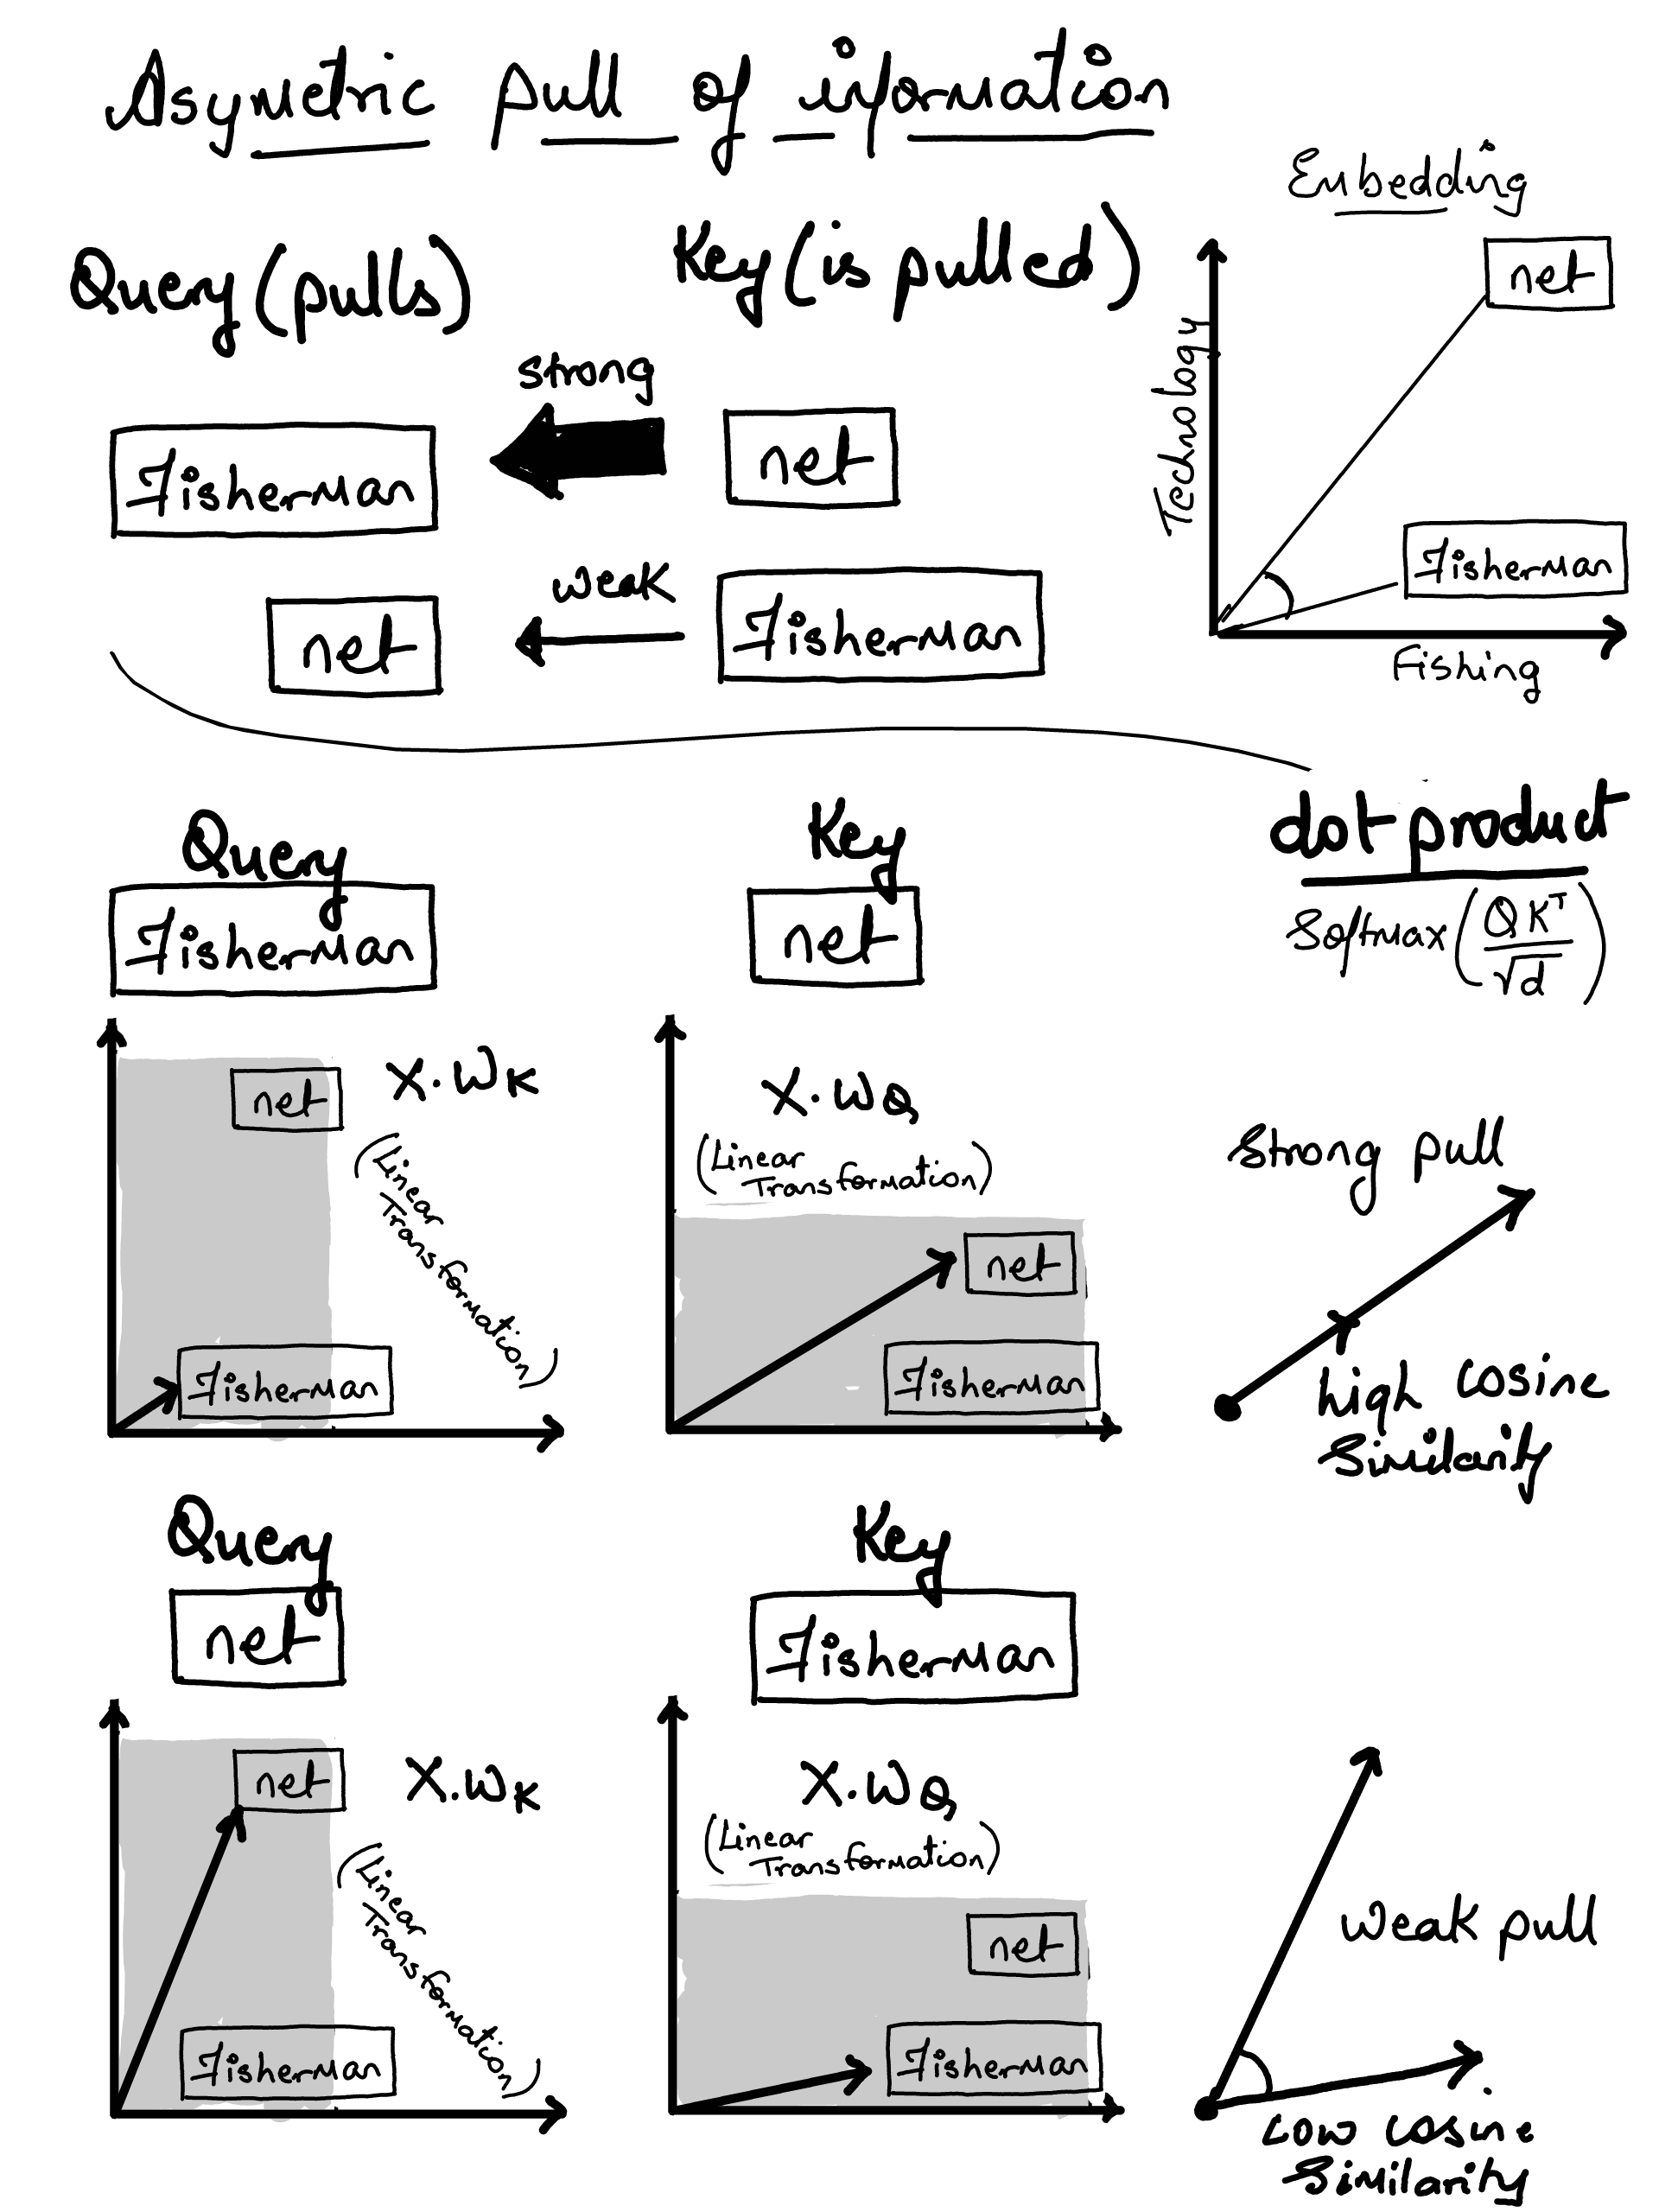 Asymetric pull of information
Embedding
Query (pulls)
Key (is pulled)
net
Technology
Fisherman
Fishing
strong
Fisherman
net
weak
net
Fisherman
Query
Fisherman
Key
net
dot product
Softmax (QK^T / √d)
net
X.WK
(Linear
Transformation)
Fisherman
X.WQ
(Linear
Transformation)
net
Fisherman
Strong pull
high cosine
similarity
Query
net
Key
Fisherman
net
X.WK
(Linear
Transformation)
Fisherman
X.WQ
(Linear
Transformation)
net
Fisherman
Weak pull
Low cosine
similarity